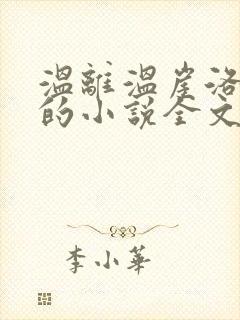 溫離溫崖洛
的小說全文
李小華